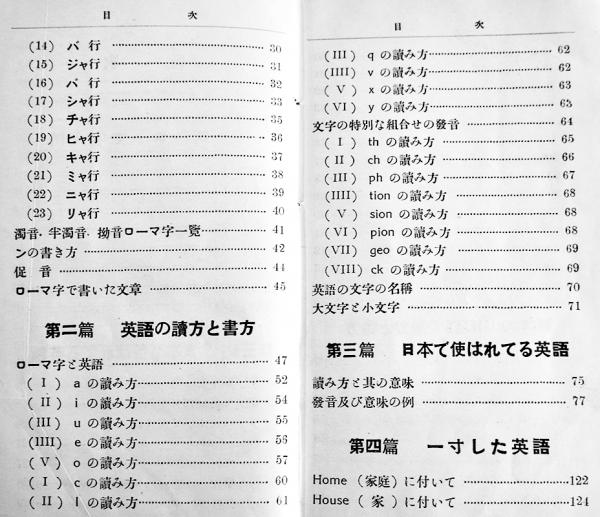 目 次
(14) バ 行 ………… 30
(15) ジャ行 ………… 31
(16) パ 行 ………… 32
(17) シャ行 ………… 33
(18) チャ行 ………… 35
(19) ヒャ行 ………… 36
(20) キャ行 ………… 37
(21) ミャ行 ………… 38
(22) ニャ行 ………… 39
(23) リャ行 ………… 40
濁音・半濁音・拗音ローマ字一覧 ………… 41
ンの書き方 ………… 42
促 音 ………… 44
ローマ字で書いた文章 ………… 45
第二篇 英語の讀方と書方
ローマ字と英語 ………… 47
( I ) a の讀み方 ………… 52
( II ) i の讀み方 ………… 54
(III) u の讀み方 ………… 55
(IIII) e の讀み方 ………… 56
( V ) o の讀み方 ………… 57
( I ) c の讀み方 ………… 60
( II ) l の讀み方 ………… 61
目 次
(III) q の讀み方 ………… 62
(IIII) v の讀み方 ………… 62
( V ) x の讀み方 ………… 63
(VI) y の讀み方 ………… 63
文字の特別な組合せの發音 ………… 64
( I ) th の讀み方 ………… 65
( II ) ch の讀み方 ………… 66
(III) ph の讀み方 ………… 67
(IIII) tion の讀み方 ………… 68
( V ) sion の讀み方 ………… 68
(VI) pion の讀み方 ………… 68
(VII) geo の讀み方 ………… 69
(VIII) ck の讀み方 ………… 69
英語の文字の名稱 ………… 70
大文字と小文字 ………… 71
第三篇 日本で使はれてる英語
讀み方と其の意味 ………… 75
發音及び意味の例 ………… 77
第四篇 一寸した英語
Home (家庭) に付いて ………… 122
House ( 家 ) に付いて ………… 124